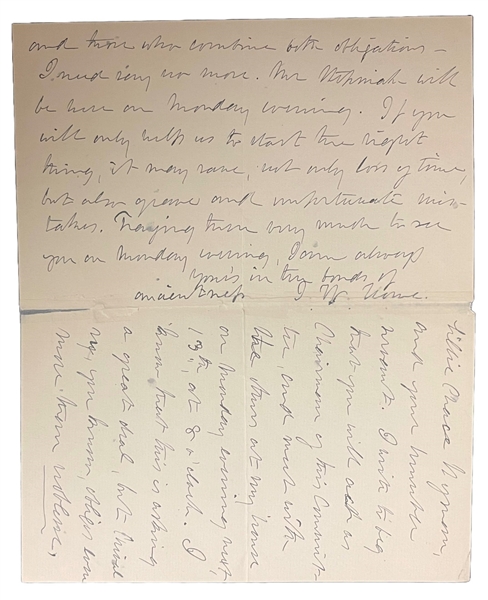 Lillie Chace Wyman,
and your humble
servant. I wish to beg
that you will act as
Chairman of this Commit-
tee, and meet with
the others at my house
on Monday evening next
13th, at 8 o'clock. I
know that this is asking
a great deal, but
you know, oblige even
more than noblesse,
and those who combine both obligations –
I need say no more. Mr Stepniak will
be here on Monday evening. If you
will only help us to start the right
thing, it may save, not only loss of time,
but also grave and unfortunate mis-
takes. Hoping then very much to see
you on Monday evening, I am always
yours in the bonds of
J. W. Howe.